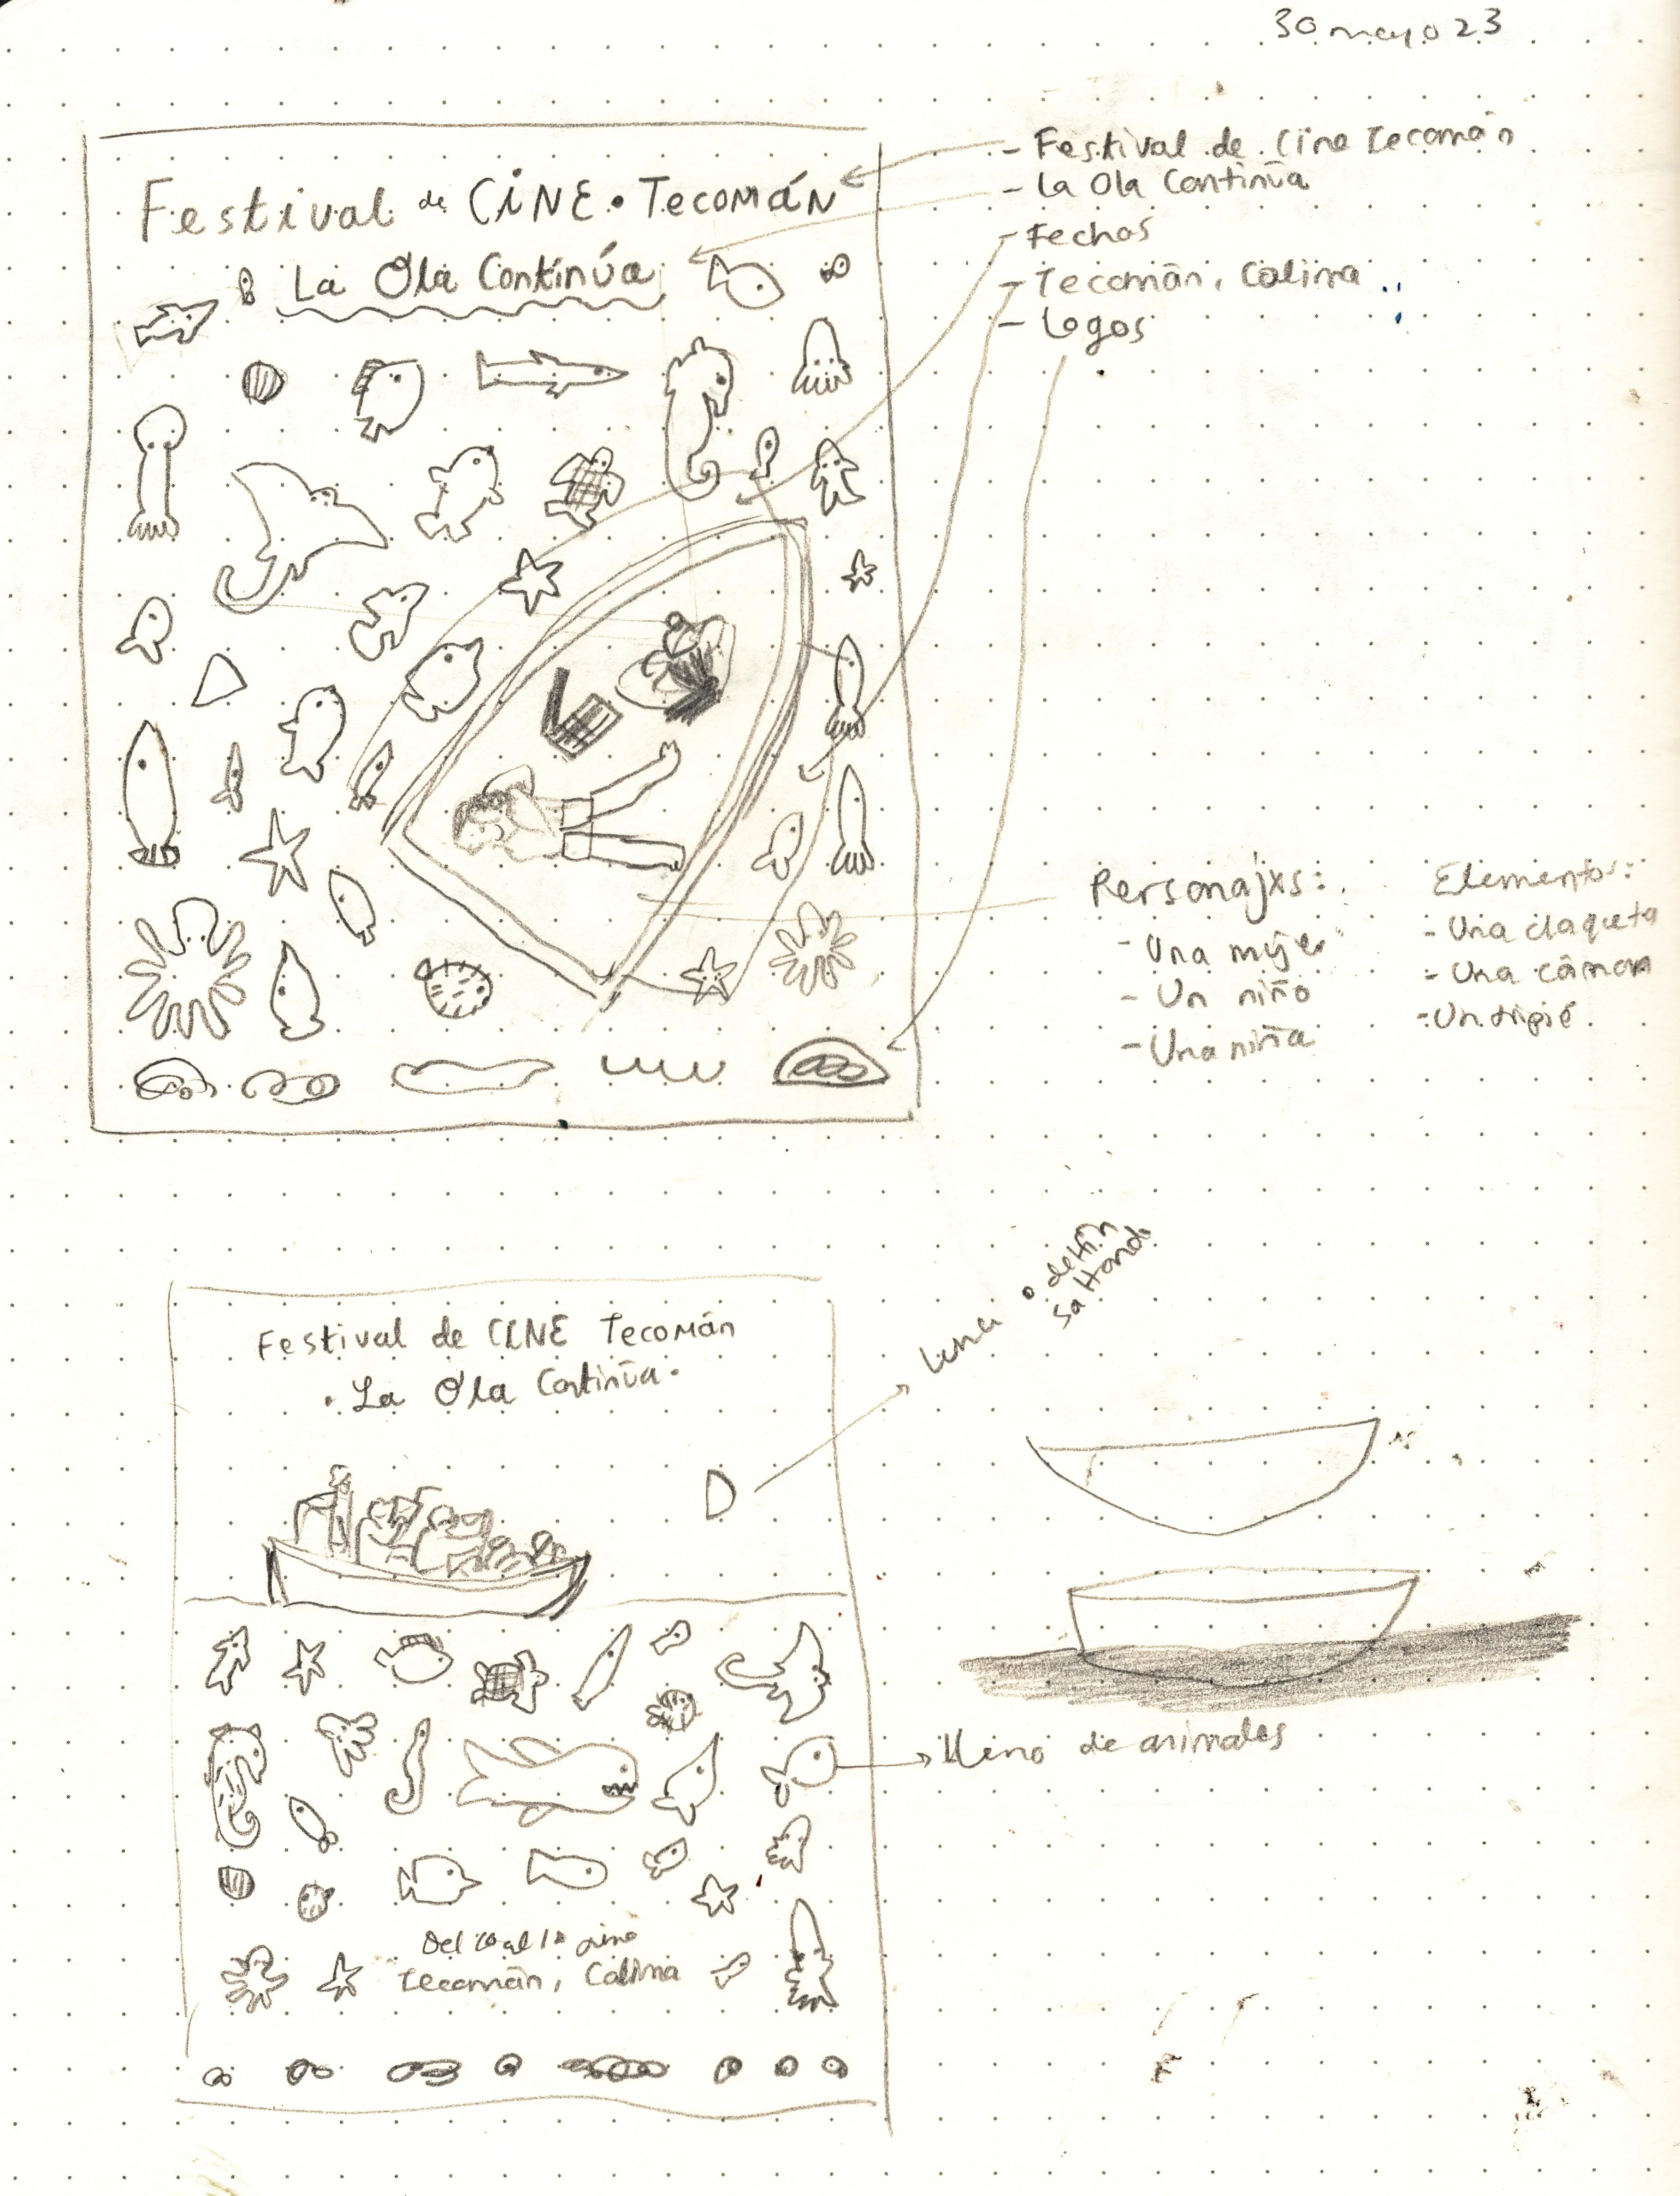 30 mayo 23
Festival de CiNE • Tecomán
La Ola Continúa
- Festival de Cine Tecomán
- La Ola Continúa
- Fechas
- Tecomán, Colima
- Logos
Personajxs:
- Una mujer
- Un niño
- Una niña
Elementos:
- Una claqueta
- Una cámara
- Un tripié
Festival de CINE Tecomán
• La Ola Continúa •
Luna o delfín
saltando
lleno de animales
Del al
Tecomán, Colima